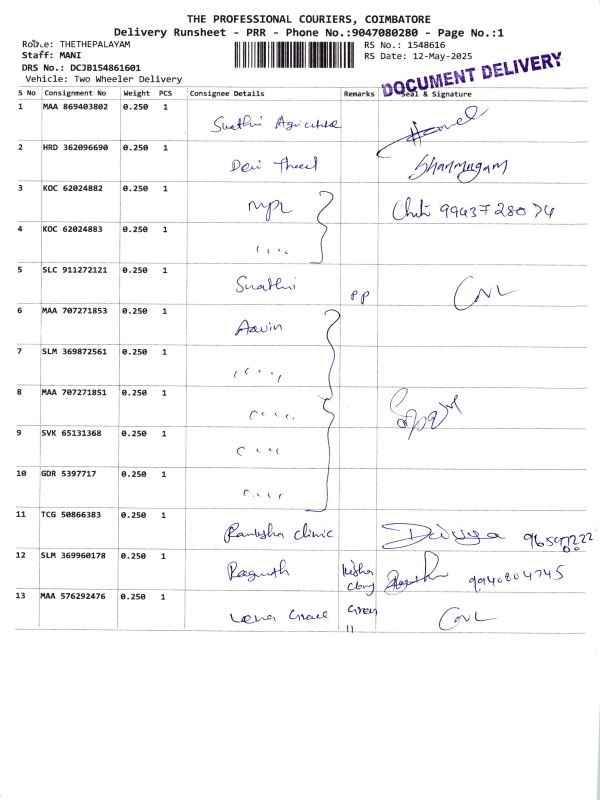 THE PROFESSIONAL COURIERS, COIMBATORE
Delivery Runsheet - PRR - Phone No.:9047080280 - Page No.:1
Route: THETHEPALAYAM RS No.: 1548616
Staff: MANI RS Date: 12-May-2025
DRS No.: DCJB154861601
Vehicle: Two Wheeler Delivery
DOCUMENT DELIVERY
S No Consignment No Weight PCS Consignee Details Remarks Seal & Signature
1 MAA 869403802 0.250 1 Swathi
2 HRD 362096690 0.250 1 Devi Shanmugam
3 KOC 62024882 0.250 1 MPL 99437 280 74
4 KOC 62024883 0.250 1 ,, ,,
5 SLC 911272121 0.250 1 Swathi PP
6 MAA 707271853 0.250 1 Aavin
7 SLM 369872561 0.250 1 ,, ,,
8 MAA 707271851 0.250 1 ,, ,,
9 SVK 65131368 0.250 1 ,, ,,
10 GDR 5397717 0.250 1 ,, ,,
11 TCG 50866383 0.250 1 clinic Divya
12 SLM 369960178 0.250 1 Ragunth 9940804745
13 MAA 576292476 0.250 1 Grace Green